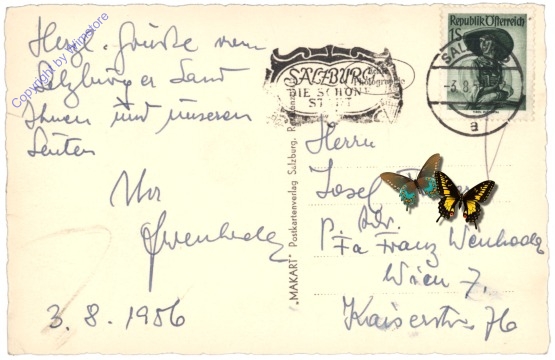 Herzl. Grüße vom
Salzburger Land
Ihnen und unseren
Leuten
Ihr
3.8.1956
Copyright by Winstore
SALZBURG
DIE SCHÖNE
STADT
Republik Österreich
1S
SALZBURG
-3.8.
a
"MAKART" Postkartenverlag Salzburg.
Herrn
Josef
p. Adr.
Fa Franz Wenhoda
Wien 7.
Kaiserstr. 76